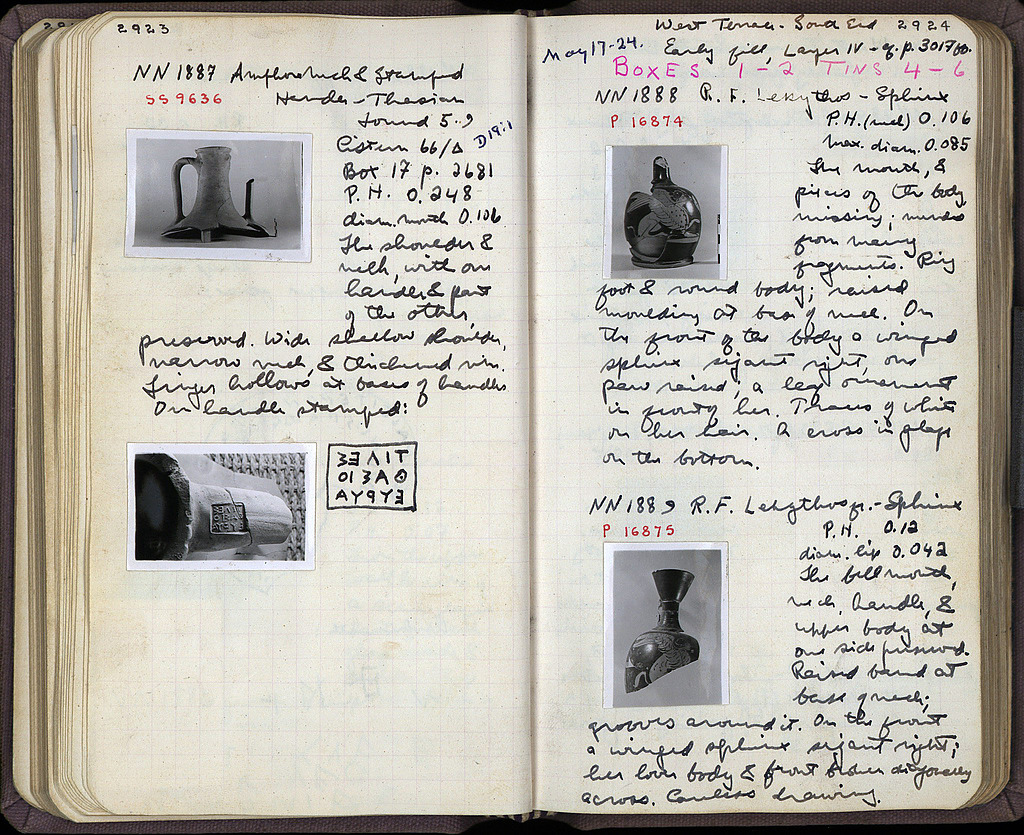 2923
NN 1887 Amphora neck & Stamped
SS 9636 Handle - Thasian
found 5.9
Cistern 66/Δ D19:1
Box 17 p. 2681
P. H. 0.248
diam. mouth 0.106
The shoulder &
neck, with one
handle & part
of the other,
preserved. Wide shallow shoulder,
narrow neck, & thickened rim.
Finger hollows at bases of handles
On handle stamped:
ƎƐΛΙΤ
ΟΙ3ΑΘ
ΑΥ9ΥƎ
West Terrace - South End 2924
May 17-24. Early fill, Layer IV - cf. p. 3017
BOXES 1 - 2 TINS 4 - 6
NN 1888 R. F. Lekythos - Sphinx
P 16874 P.H. (neck) 0.106
max. diam. 0.085
The mouth, &
pieces of the body
missing; mended
from many
fragments. Ring
foot & round body; raised
moulding at base of neck. On
the front of the body a winged
sphinx sejant right, one
paw raised; a leaf ornament
in front of her. Traces of white
on her hair. A cross in glaze
on the bottom.
NN 1889 R. F. Lekythos fr. - Sphinx
P 16875 P.H. 0.12
diam. lip 0.042
The bell mouth,
neck, handle, &
upper body at
one side preserved.
Raised band at
base of neck;
grooves around it. On the front
a winged sphinx sejant right;
her lower body & front broken diagonally
across. Careless drawing.